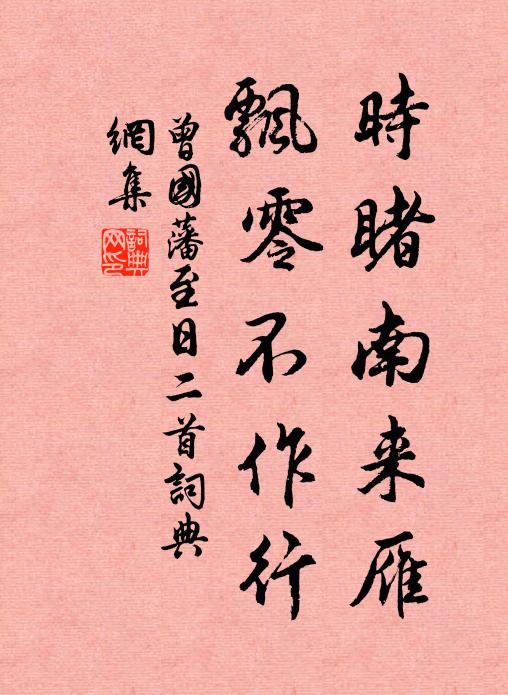 時睹南来雁
飄零不作行
曾國藩至日二首詞典
網集
詞典
网印